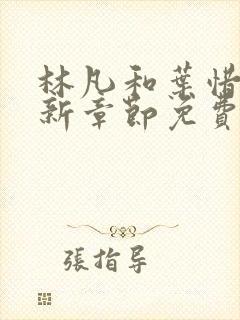 林凡和葉惜
新章節免費
張指导